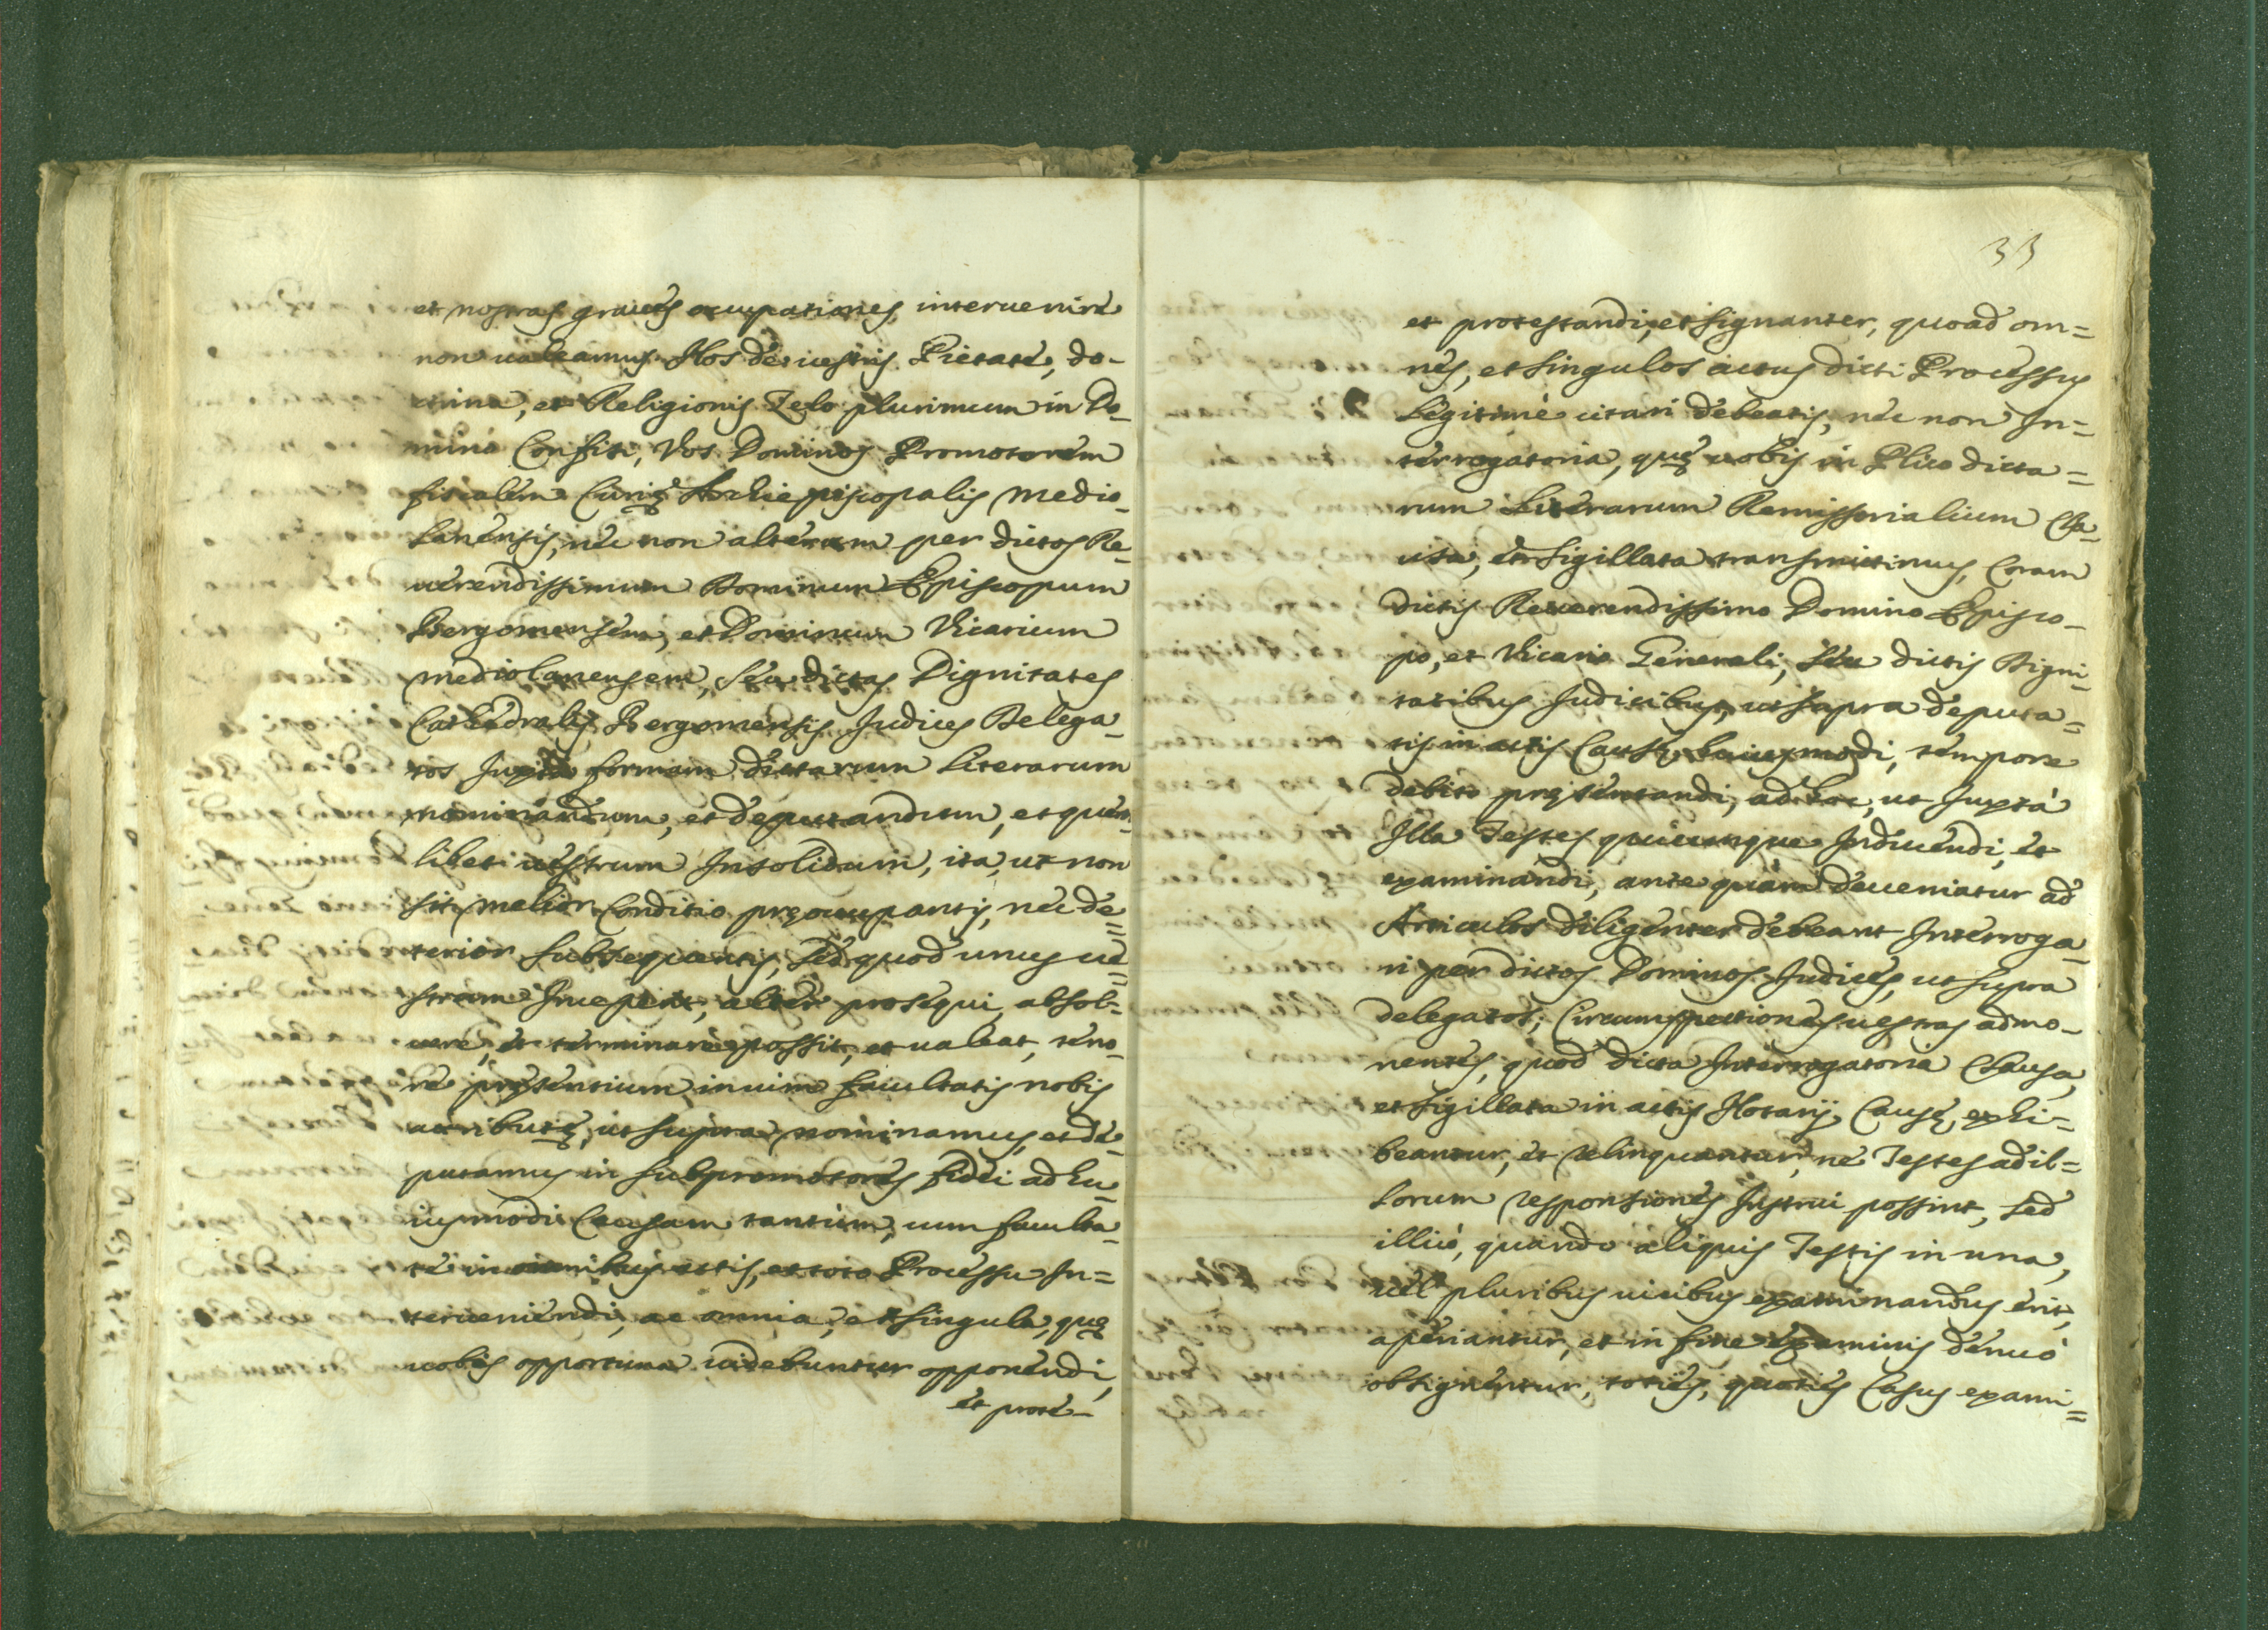 et nostras graues occupationes interuenire
non ualeamus. Nos de uestris Pietate, do-
ctrina, et Religionis Zelo plurimum in Do-
mino Confisi, Vos Dominos Promotorem
fiscalem Curię Archiepiscopalis Medio-
lanensis, nec non alterum per dictos Re-
uerendissimum Dominum Episcopum
Bergomensem, et Dominum Vicarium
mediolanensem, seu dictas Dignitates
Cathedralis Bergomensis Judices Delega-
tos Juxta formam dictarum Literarum
nominandum, et deputandum, et quem-
libet uestrum Insolidum, ita, ut non
sit melior Conditio pręoccupantis, nec de=
terior subsequentis, sed quod unus ue=
strum Inceperit, alter prosequi, absol-
uere, et terminare possit, et ualeat, teno-
re pręsentium in uim facultatis nobis
attributę, ut supra, nominamus, et de-
putamus in subpromotores fidei ad hu-
iusmodi Causam tantum, cum faculta-
te in omnibus actis, et toto Processu In=
terueniendi, ac omnia, et singula, quę
uobis opportuna uidebuntur opponendi,
et prote-
33
et protestandi, et signanter, quoad om=
nes, et singulos actus dicti Processus
Legitimè citari debeatis, nec non In=
terrogatoria, quę uobis in Plico dicta=
rum Literarum Remissorialium Cla-
usa, et sigillata transmittimus, Coram
dictis Reuerendissimo Domino Episco-
po, et Vicario Generali, seu dictis Digni-
tatibus Judicibus, ut supra deputa=
tis in actis Causę huiusmodi, tempore
debito pręsentandi, ad hoc, ut Juxtà
Illa Testes quicumque Inducendi, et
examinandi, ante quàm deueniatur ad
Articulos diligenter debeant Interroga-
ri per dictos Dominos Judices, ut supra
delegatos; Circumspectiones uestras admo-
nentes, quod dicta Interrogatoria Clausa,
et sigillata in actis Notarij Causę exhi=
beantur, et relinquantur, ne Testes ad il=
lorum responsiones Instrui possint, sed
illicò, quando aliquis Testis in una,
uel pluribus uicibus examinandus erit,
aperiantur, et in fine examinis denuò
obsignentur, toties, quoties Casus exami=